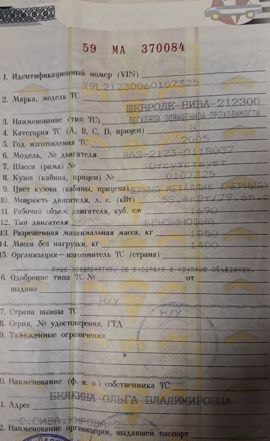 59 МА 370084
1. Идентификационный номер (VIN)
X9L21230060107325
2. Марка, модель ТС
ШЕВРОЛЕ-НИВА-212300
3. Наименование (тип ТС) ЛЕГКОВОЙ ПОВЫШЕННОЙ ПРОХОДИМОСТИ
4. Категория ТС (A, B, C, D, прицеп) B
5. Год изготовления ТС 2005
6. Модель, № двигателя ВАЗ-2123-0118037
7. Шасси (рама) № Отсутствует
8. Кузов (кабина, прицеп) № 0107325
9. Цвет кузова (кабины, прицепа)
10. Мощность двигателя, л. с. (кВт)
11. Рабочий объем двигателя, куб. см 1690
12. Тип двигателя БЕНЗИНОВЫЙ
13. Разрешенная максимальная масса, кг 1850
14. Масса без нагрузки, кг 1400
15. Организация-изготовитель ТС (страна)
Иные предприятия, не входящие в крупные объединен.
6. Одобрение типа ТС № от
выдано
Н/У
7. Страна вывоза ТС Н/У
8. Серия, № удостоверения, ГТД
9. Таможенные ограничения
0. Наименование (ф. и. о.) собственника ТС
БЕЛКИНА ОЛЬГА ВЛАДИМИРОВНА
1. Адрес
С.СИВА,КИРОВА
2. Наименование организации, выдавшей паспорт